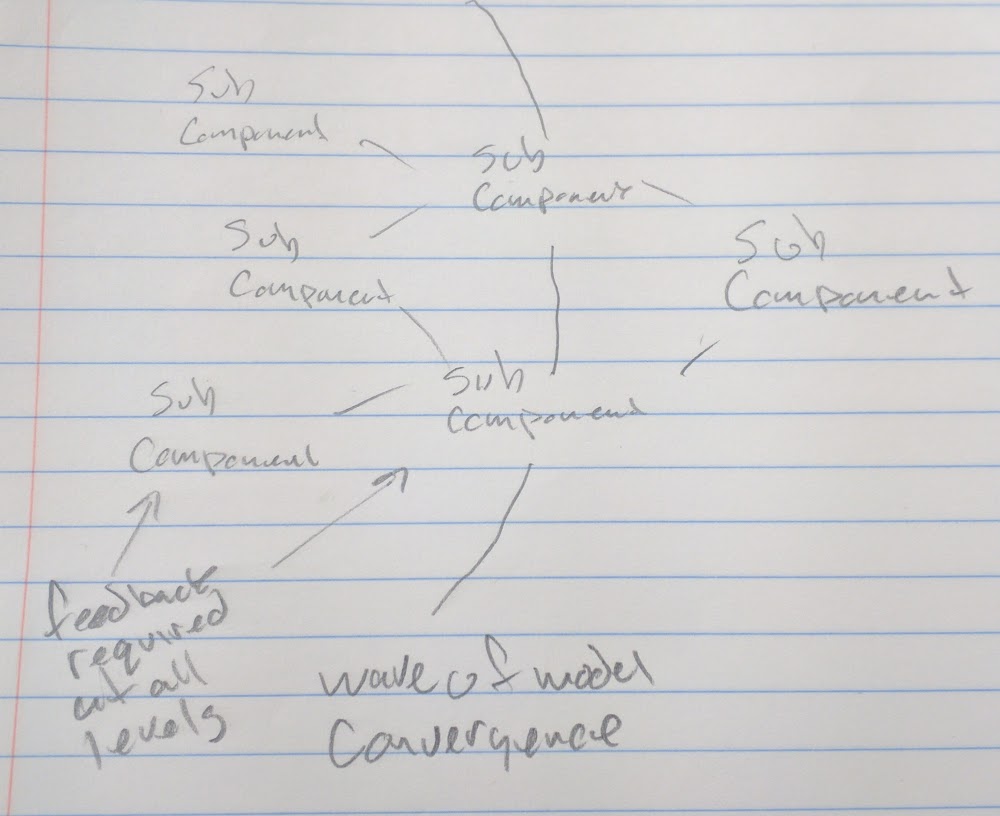 Sub
Component
Sub
Component
Sub
Component
Sub
Component
Sub
Component
Sub
Component
feedback
required
at all
levels
wave of model
Convergence